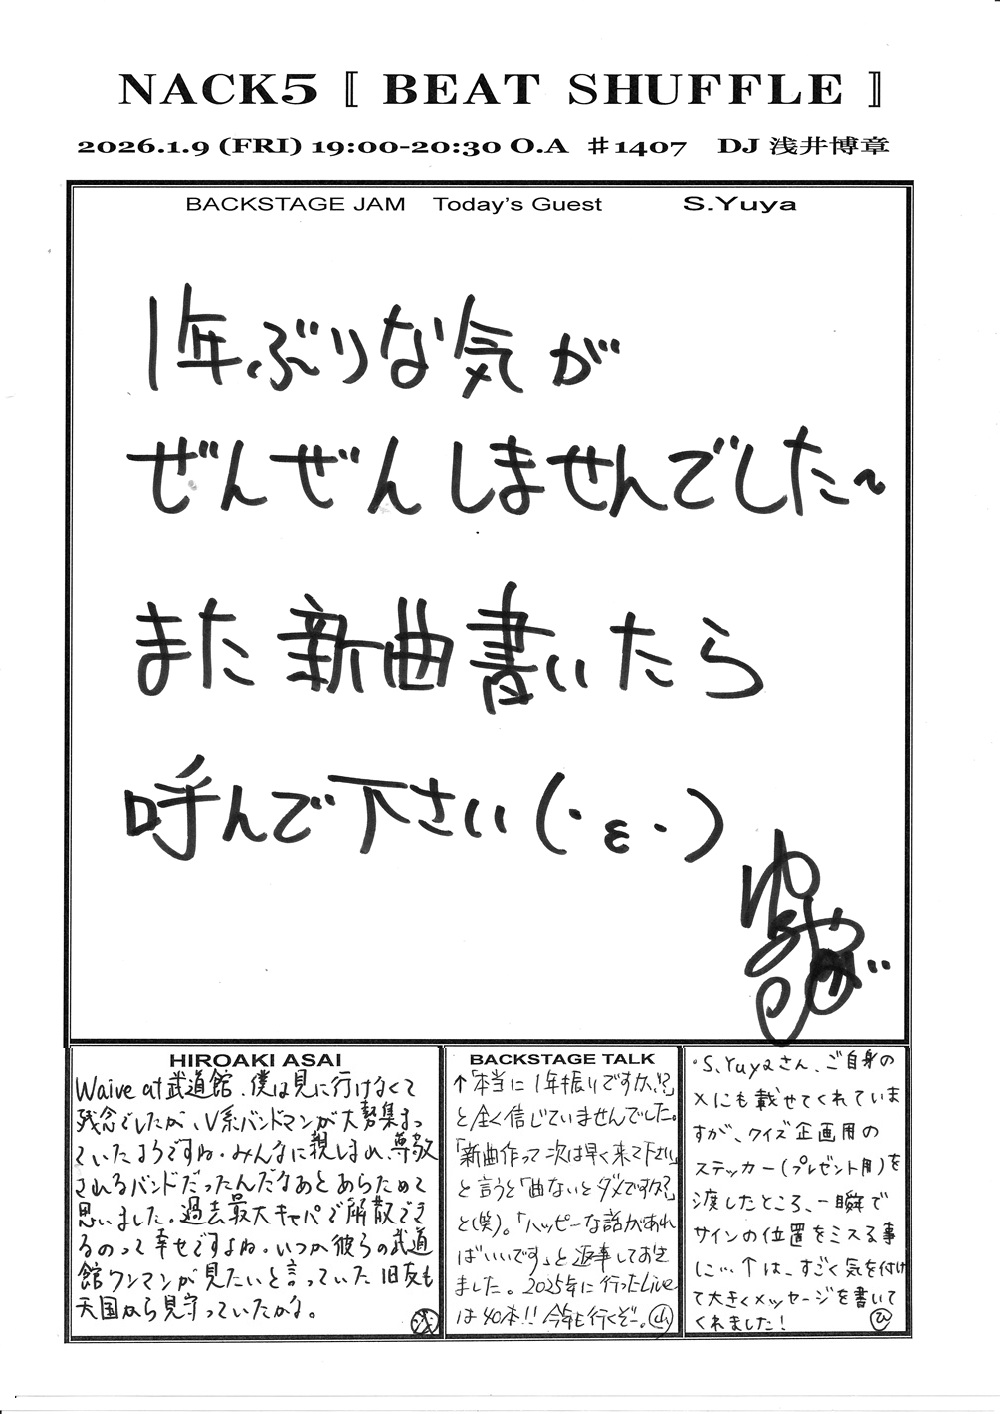 NACK5 〚 BEAT SHUFFLE 〛
2026.1.9 (FRI) 19:00-20:30 O.A ♯1407 DJ 浅井博章
BACKSTAGE JAM Today's Guest S.Yuya
1年ぶりな気が
ぜんぜんしませんでした〜
また新曲書いたら
呼んで下さい(・ε・)
HIROAKI ASAI
Waive at 武道館、僕は見に行けなくて
残念でしたが、V系バンドマンが大勢集まっ
ていたようですね。みんなに親しまれ、尊敬
されるバンドだったんだなあとあらためて
思いました。過去最大キャパで解散でき
るのって幸せですよね。いつか彼らの武道
館ワンマンが見たいと言っていた旧友も
天国から見守っていたかな。
浅
BACKSTAGE TALK
↑「本当に1年振りですか!?」
と全く信じていませんでした。
「新曲作って次は早く来て下さい」
と言うと「曲ないとダメですか?」
と(笑)。「ハッピーな話があれ
ばいいです」と返事しておき
ました。2025年に行ったLive
は40本!! 今年も行くぞー。山
・S.Yuyaさん、ご自身の
Xにも載せてくれていま
すが、クイズ企画用の
ステッカー(プレゼント用)を
渡したところ、一瞬で
サインの位置をミスる事
に…↑は、すごく気を付け
て大きくメッセージを書いて
くれました! ひ